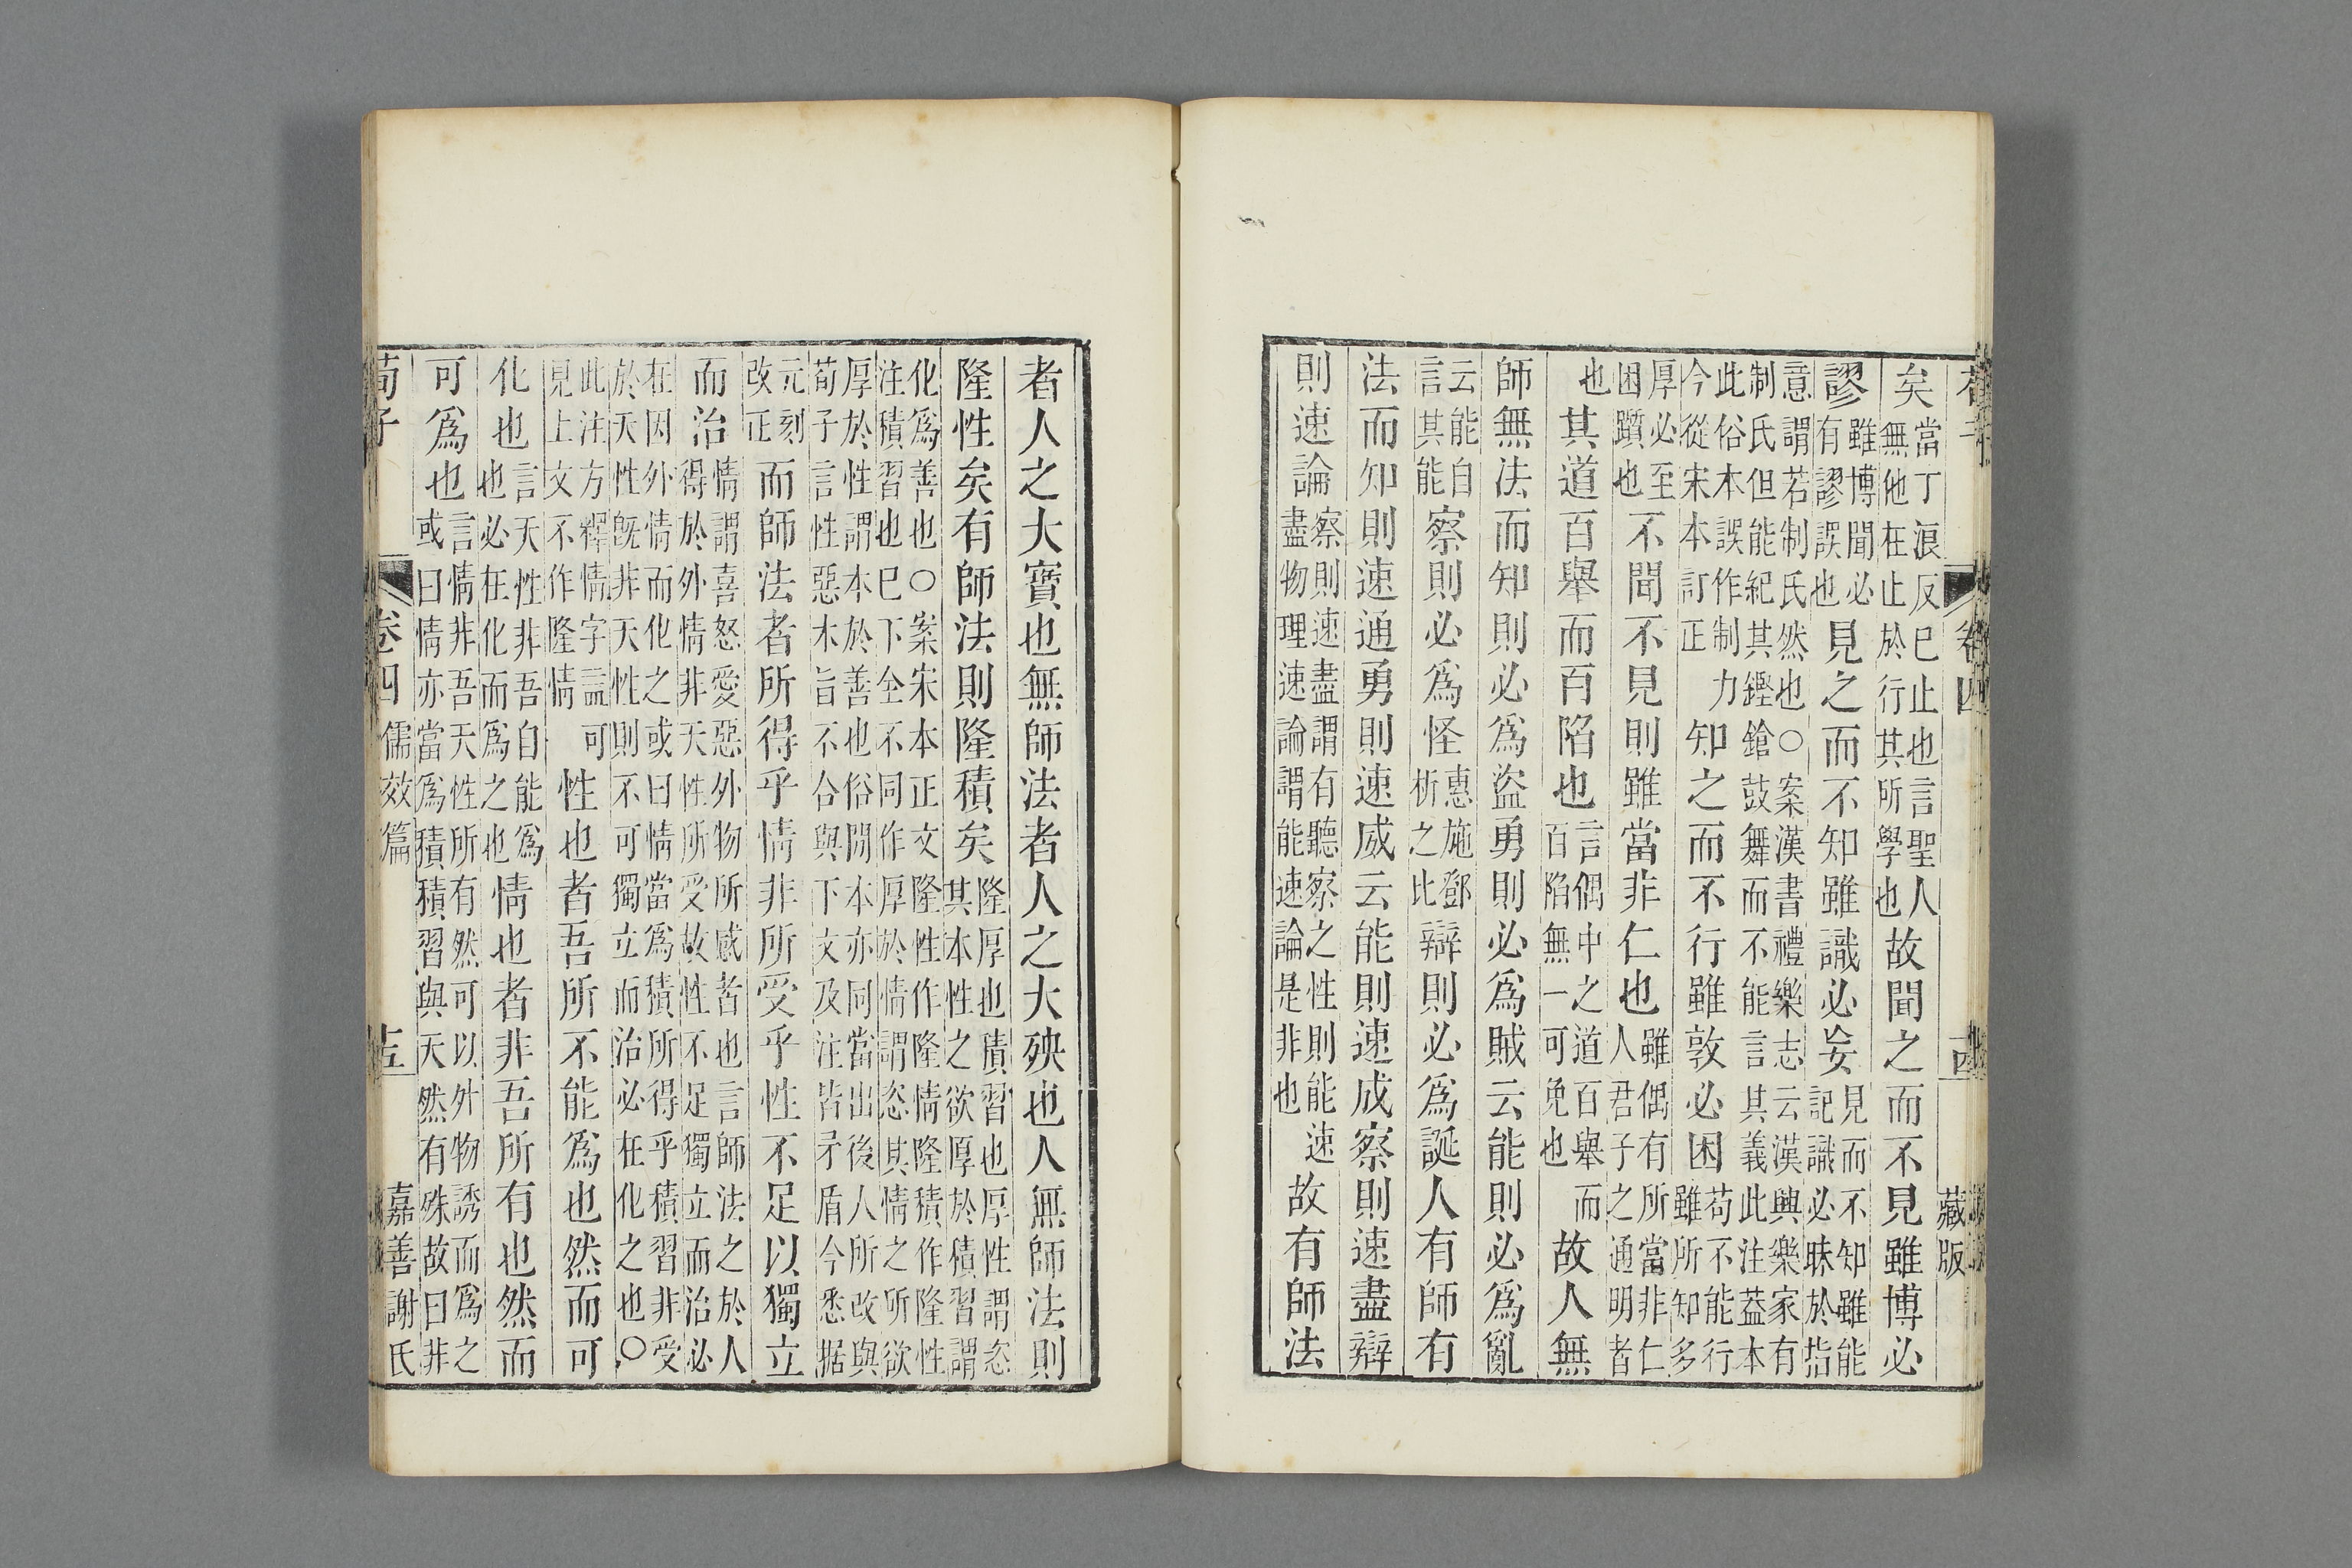 卷四 藏版
矣當丁浪反已止也言聖人無他在止於行其所學也故聞之而不見雖博必
謬雖博聞必有謬誤也見之而不知雖識必妄見而不知雖能記識必昧於指
意謂若制氏然也○案漢書禮樂志云漢興樂家有制氏但能紀其鏗鎗鼓舞而不能言其義此注蓋本
此俗本誤作制力今從宋本訂正知之而不行雖敦必困苟不能行雖所知多
厚必至困躓也不聞不見則雖當非仁也雖偶有所當非仁人君子之通明者
也其道百舉而百陷也言偶中之道百舉而百陷無一可免也故人無
師無法而知則必爲盜勇則必爲賊云能則必爲亂
云能自言其能察則必爲怪惠施鄧析之比辯則必爲誕人有師有
法而知則速通勇則速威云能則速成察則速盡辯
則速論察則速盡謂有聽察之性則能速盡物理速論謂能速論是非也故有師法
者人之大寶也無師法者人之大殃也人無師法則
隆性矣有師法則隆積矣隆厚也積習也厚性謂恣其本性之欲厚於積習謂
化爲善也○案宋本正文隆性作隆情隆積作隆性注積習也已下全不同作厚於情謂恣其情之所欲
厚於性謂本於善也俗閒本亦同當出後人所改與荀子言性惡本旨不合與下文及注皆矛盾今悉据
元刻改正而師法者所得乎情非所受乎性不足以獨立
而治情謂喜怒愛惡外物所感者也言師法之於人得於外情非天性所受故性不足獨立而治必
在因外情而化之或曰情當爲積所得乎積習非受於天性既非天性則不可獨立而治必在化之也○
此注方釋情字可見上文不作隆情性也者吾所不能爲也然而可
化也言天性非吾自能爲也必在化而爲之也情也者非吾所有也然而
可爲也言情非吾天性所有然可以外物誘而爲之或曰情亦當爲積積習與天然有殊故曰非
荀子 卷四 儒效篇 十五 嘉善謝氏